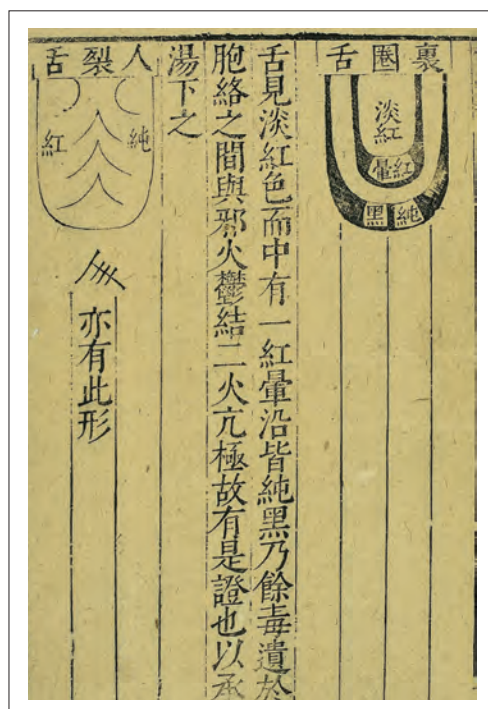 裏圈舌
淡紅
紅暈
純黑
舌見淡紅色而中有一紅暈沿皆純黑乃餘毒遺於
胞絡之間與邪火鬱結二火亢極故有是證也以承
湯下之
人裂舌
純紅
亦有此形